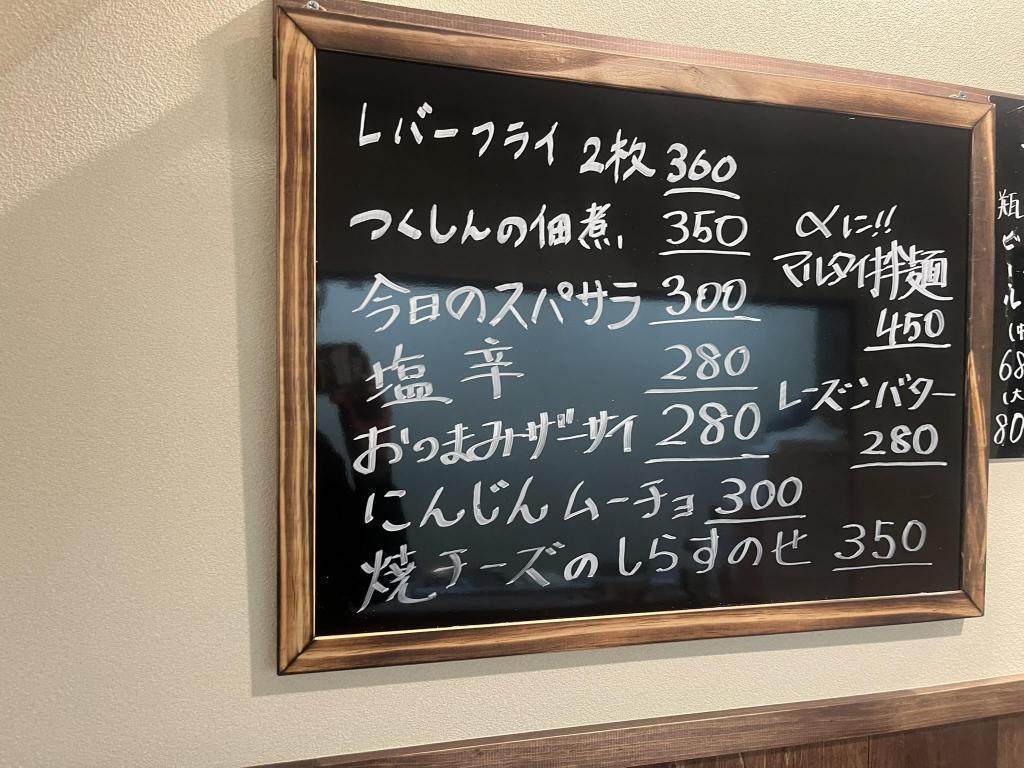 レバーフライ 2枚 360
つくしんの佃煮 350
今日のスパサラ 300
塩辛 280
おつまみザーサイ 280
にんじんムーチョ 300
焼チーズのしらすのせ 350
〆に!!
マルタイ拌麺
450
レーズンバター
280
瓶ビール
68
80